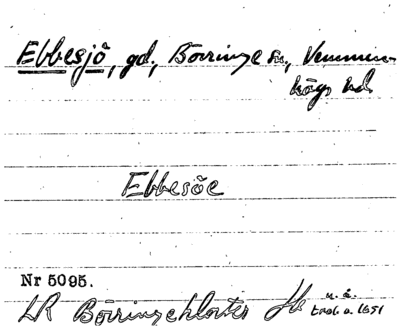 Ebbesjö, gd, Börringe sn, Vemmen-
högs hd
Ebbesöe
Nr 5095.
LR Börringekloster
u. å.
trol. a. 1651